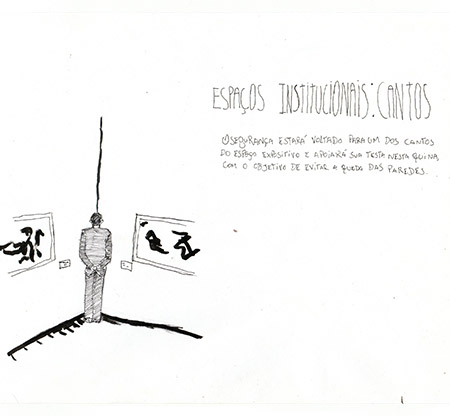 ESPAÇOS INSTITUCIONAIS: CANTOS
O SEGURANÇA ESTARÁ VOLTADO PARA UM DOS CANTOS
DO ESPAÇO EXPOSITIVO E APOIARÁ SUA TESTA NESTA QUINA,
COM O OBJETIVO DE EVITAR A QUEDA DAS PAREDES.